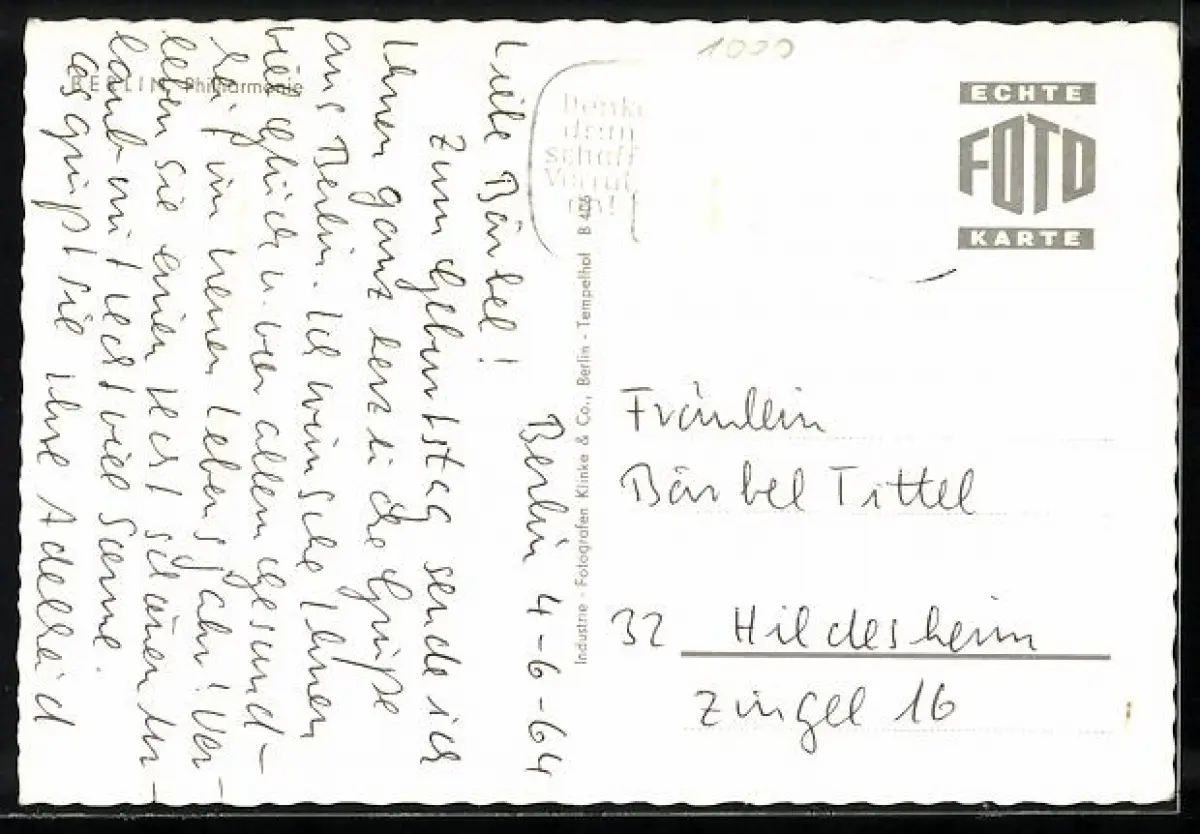 1000
BERLIN Philharmonie
Berlin 4-6-64
Liebe Bärbel!
Zum Geburtstag sende ich
Ihnen ganz herzliche Grüße
aus Berlin. Ich wünsche Ihnen
viel Glück u. vor allem Gesund-
heit im neuen Lebensjahr! Ver-
leben sie einen recht schönen Ur-
laub mit recht viel Sonne.
Es grüßt sie Ihre Adelheid
Industrie - Fotografen Klinke & Co., Berlin - Tempelhof B 406
Denke
dran
schaff
Vorrat
an!
ECHTE
FOTO
KARTE
Fräulein
Bärbel Tittel
32 Hildesheim
Zingel 16